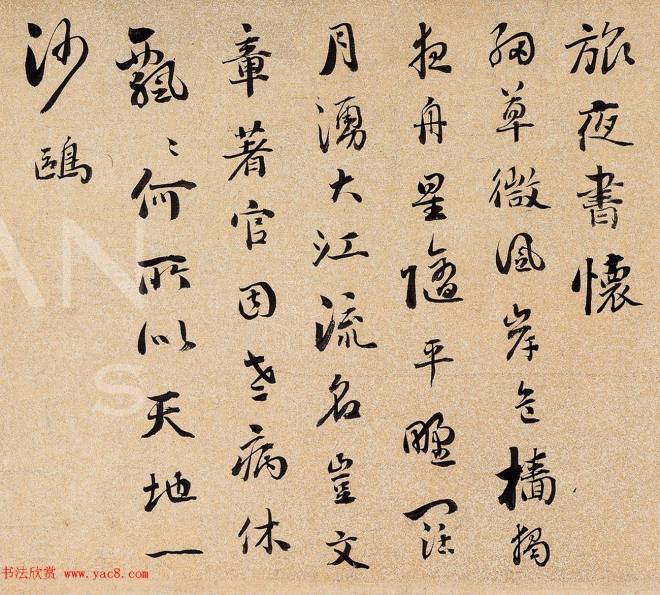 旅夜書懷
細草微風岸危檣獨
夜舟星隨平野闊
月湧大江流名豈文
章著官因老病休
飄〻何所似天地一
沙鷗
AN
S
书法欣赏 www.yac8.com